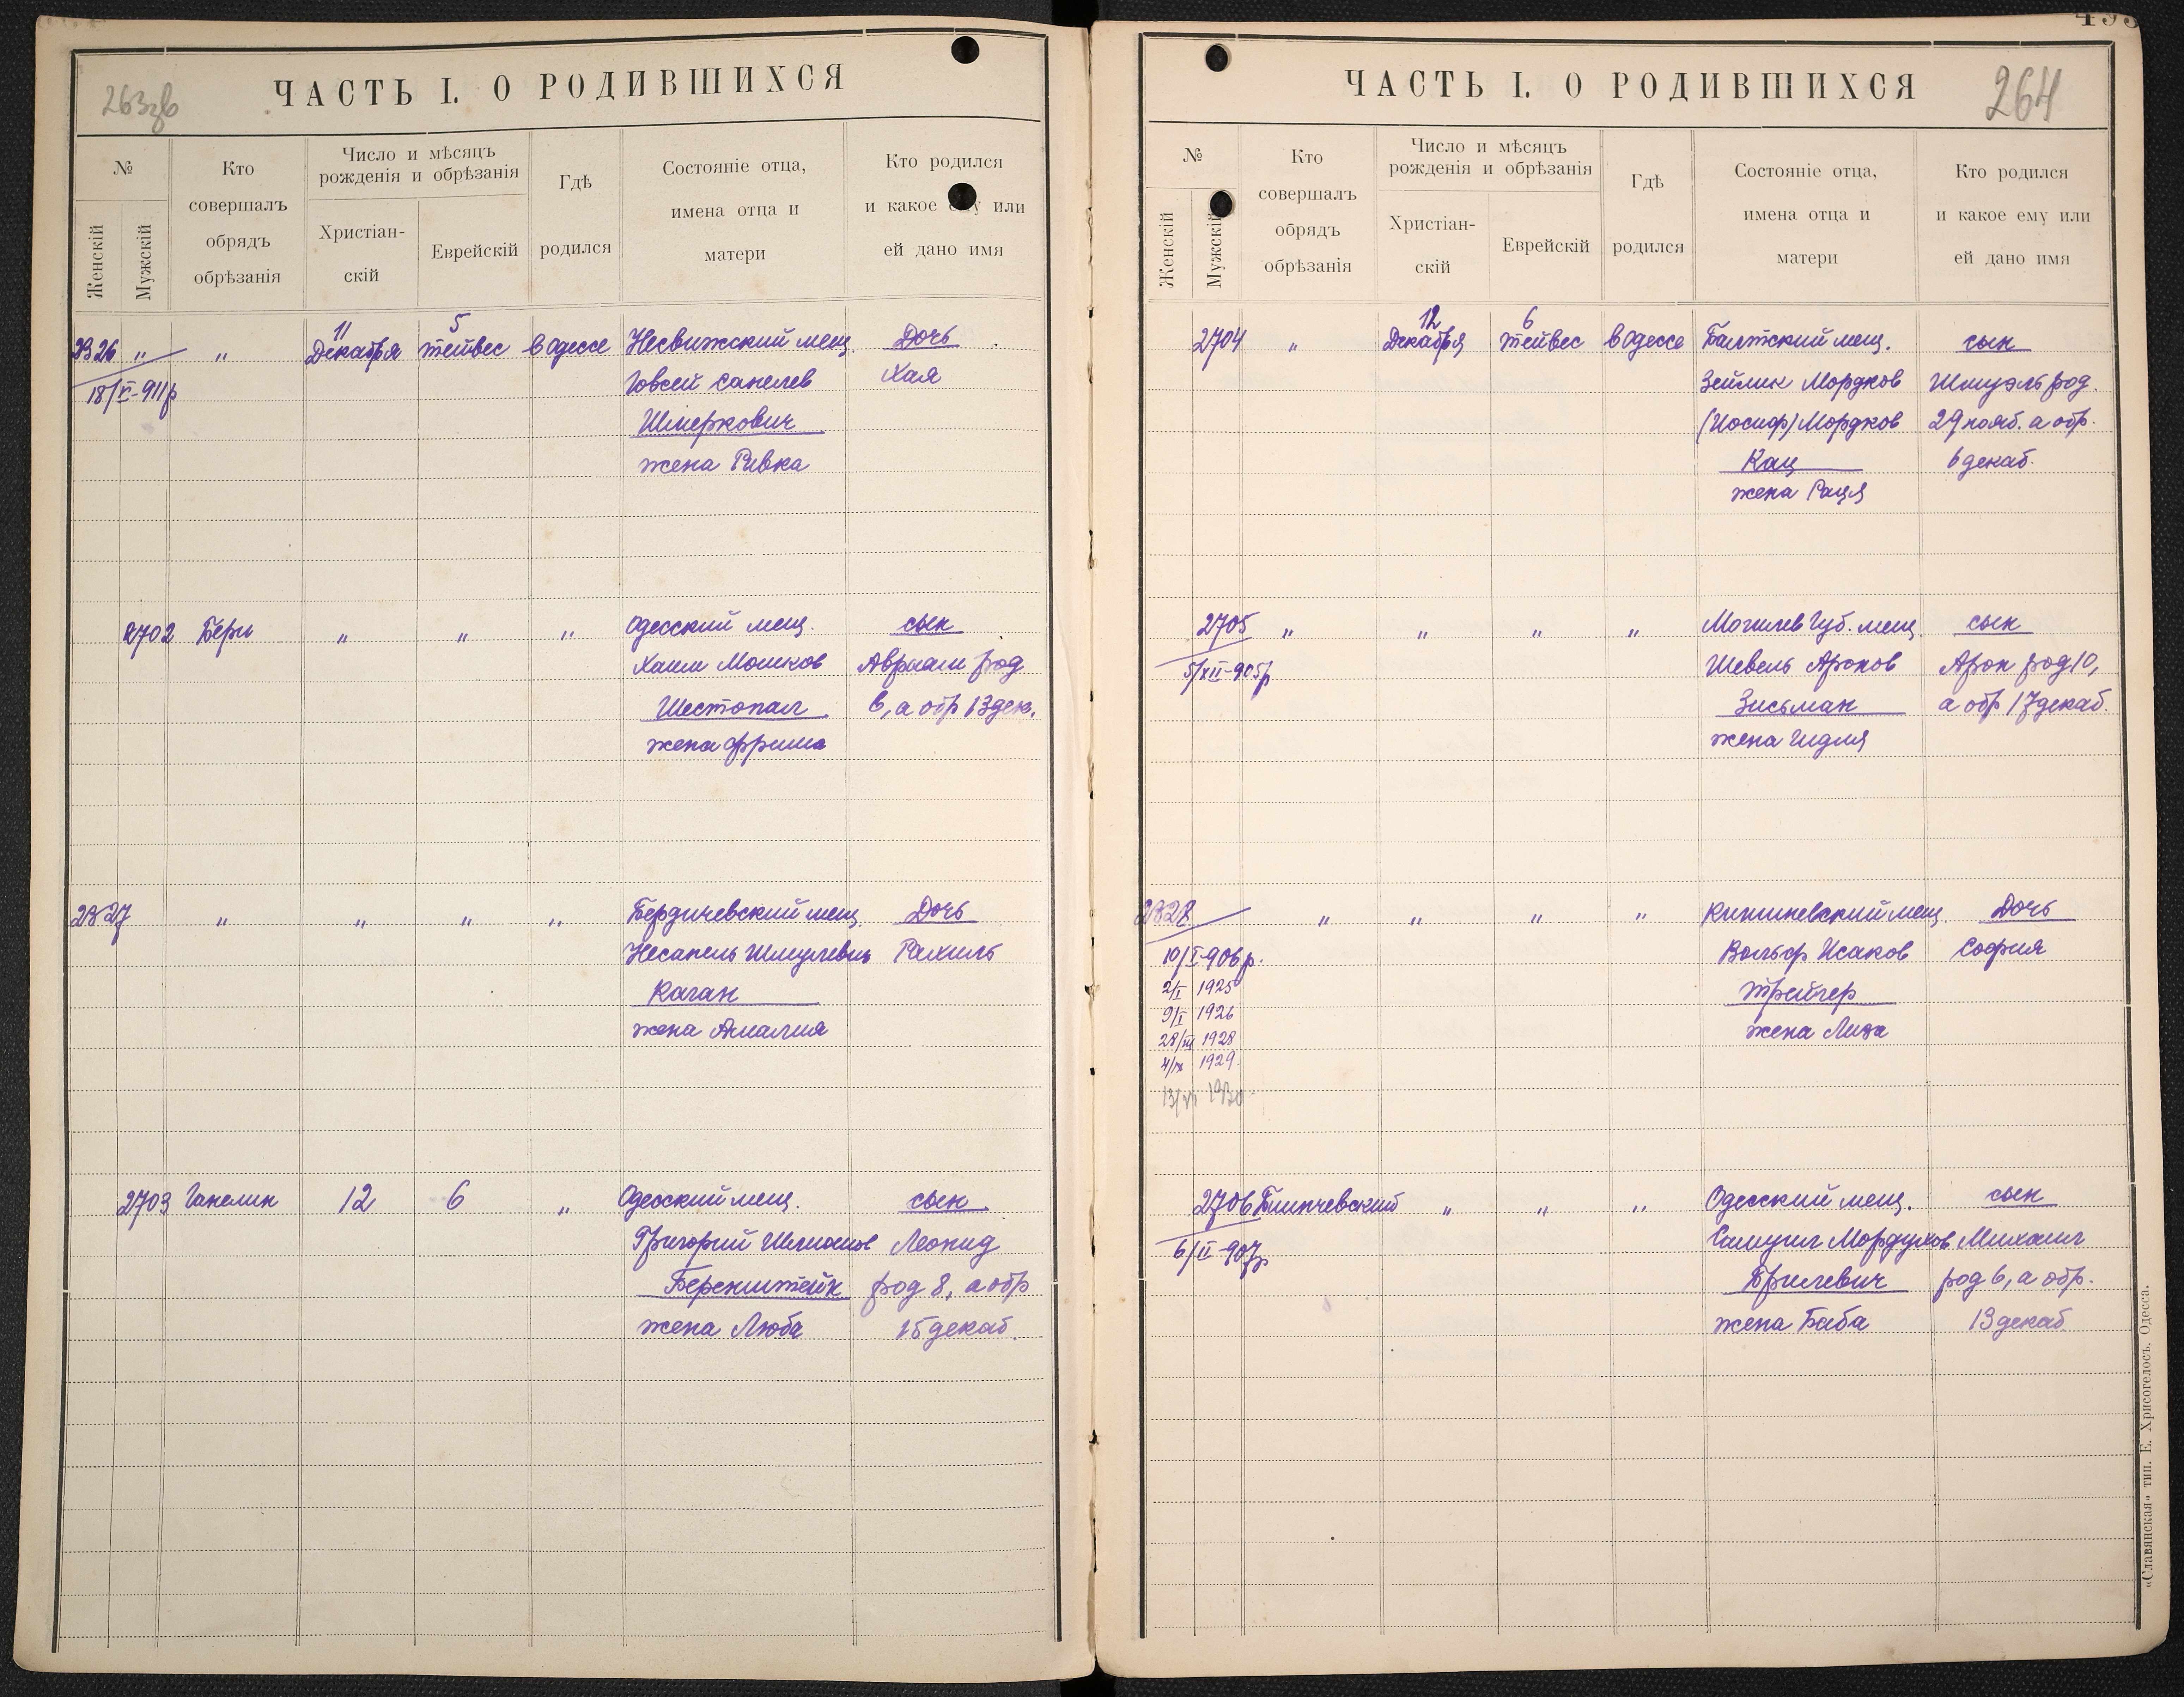 263зв
ЧАСТЬ I. О РОДИВШИХСЯ
№
Женскій
Мужскій
Кто
совершалъ
обрядъ
обрѣзанія
Число и мѣсяцъ
рожденія и обрѣзанія
Христіан-
скій
Еврейскій
Гдѣ
родился
Состояніе отца,
имена отца и
матери
Кто родился
и какое ему или
ей дано имя
11 5
2326 " " Декабря тейвес в Одессе Несвижский мещ. Дочь
18/V-911р Говсей Санелев Хая
Шмеркович
жена Ривка
2702 Бери " " " Одесский мещ. сын
Хаим Мошков Авраам род
Шестопал 6, а обр 13 дек.
жена Фрима
2327 " " " " Бердичевский мещ. Дочь
Несанель Шмулевич Рахиль
Каган
жена Амалия
2703 Ганелин 12 6 " Одесский мещ. сын
Григорий Шлиомов Леонид
Беренштейн род 8, а обр
жена Люба 15 декаб.
493
264
ЧАСТЬ I. О РОДИВШИХСЯ
№
Женскій
Мужскій
Кто
совершалъ
обрядъ
обрѣзанія
Число и мѣсяцъ
рожденія и обрѣзанія
Христіан-
скій
Еврейскій
Гдѣ
родился
Состояніе отца,
имена отца и
матери
Кто родился
и какое ему или
ей дано имя
12 6
2704 " Декабря тейвес в Одессе Балтский мещ. сын
Зейлик Мордков Шмуэль род.
(Иосиф) Мордков 29 нояб. а обр.
Кац 6 декаб.
жена Рация
2705 " " " " Могилев Губ. мещ. сын
5/XII-905р Шевель Аронов Арон род 10,
Зисьман а обр 17 декаб.
жена Гидля
2328 " " " " Кишиневский мещ. Дочь
10/I-906р. Вольф Исаков София
2/I 1925 Трейгер
9/I 1926 жена Лиза
28/III 1928
4/IX 1929.
13/VI 1930
2706 Блинчевский " " " Одесский мещ. сын
6/II-907р Самуил Мордухов Михаил
Брилевич род 6, а обр.
жена Баба 13 декаб
«Славянская» тип. Е. Хрисогелосъ. Одесса.